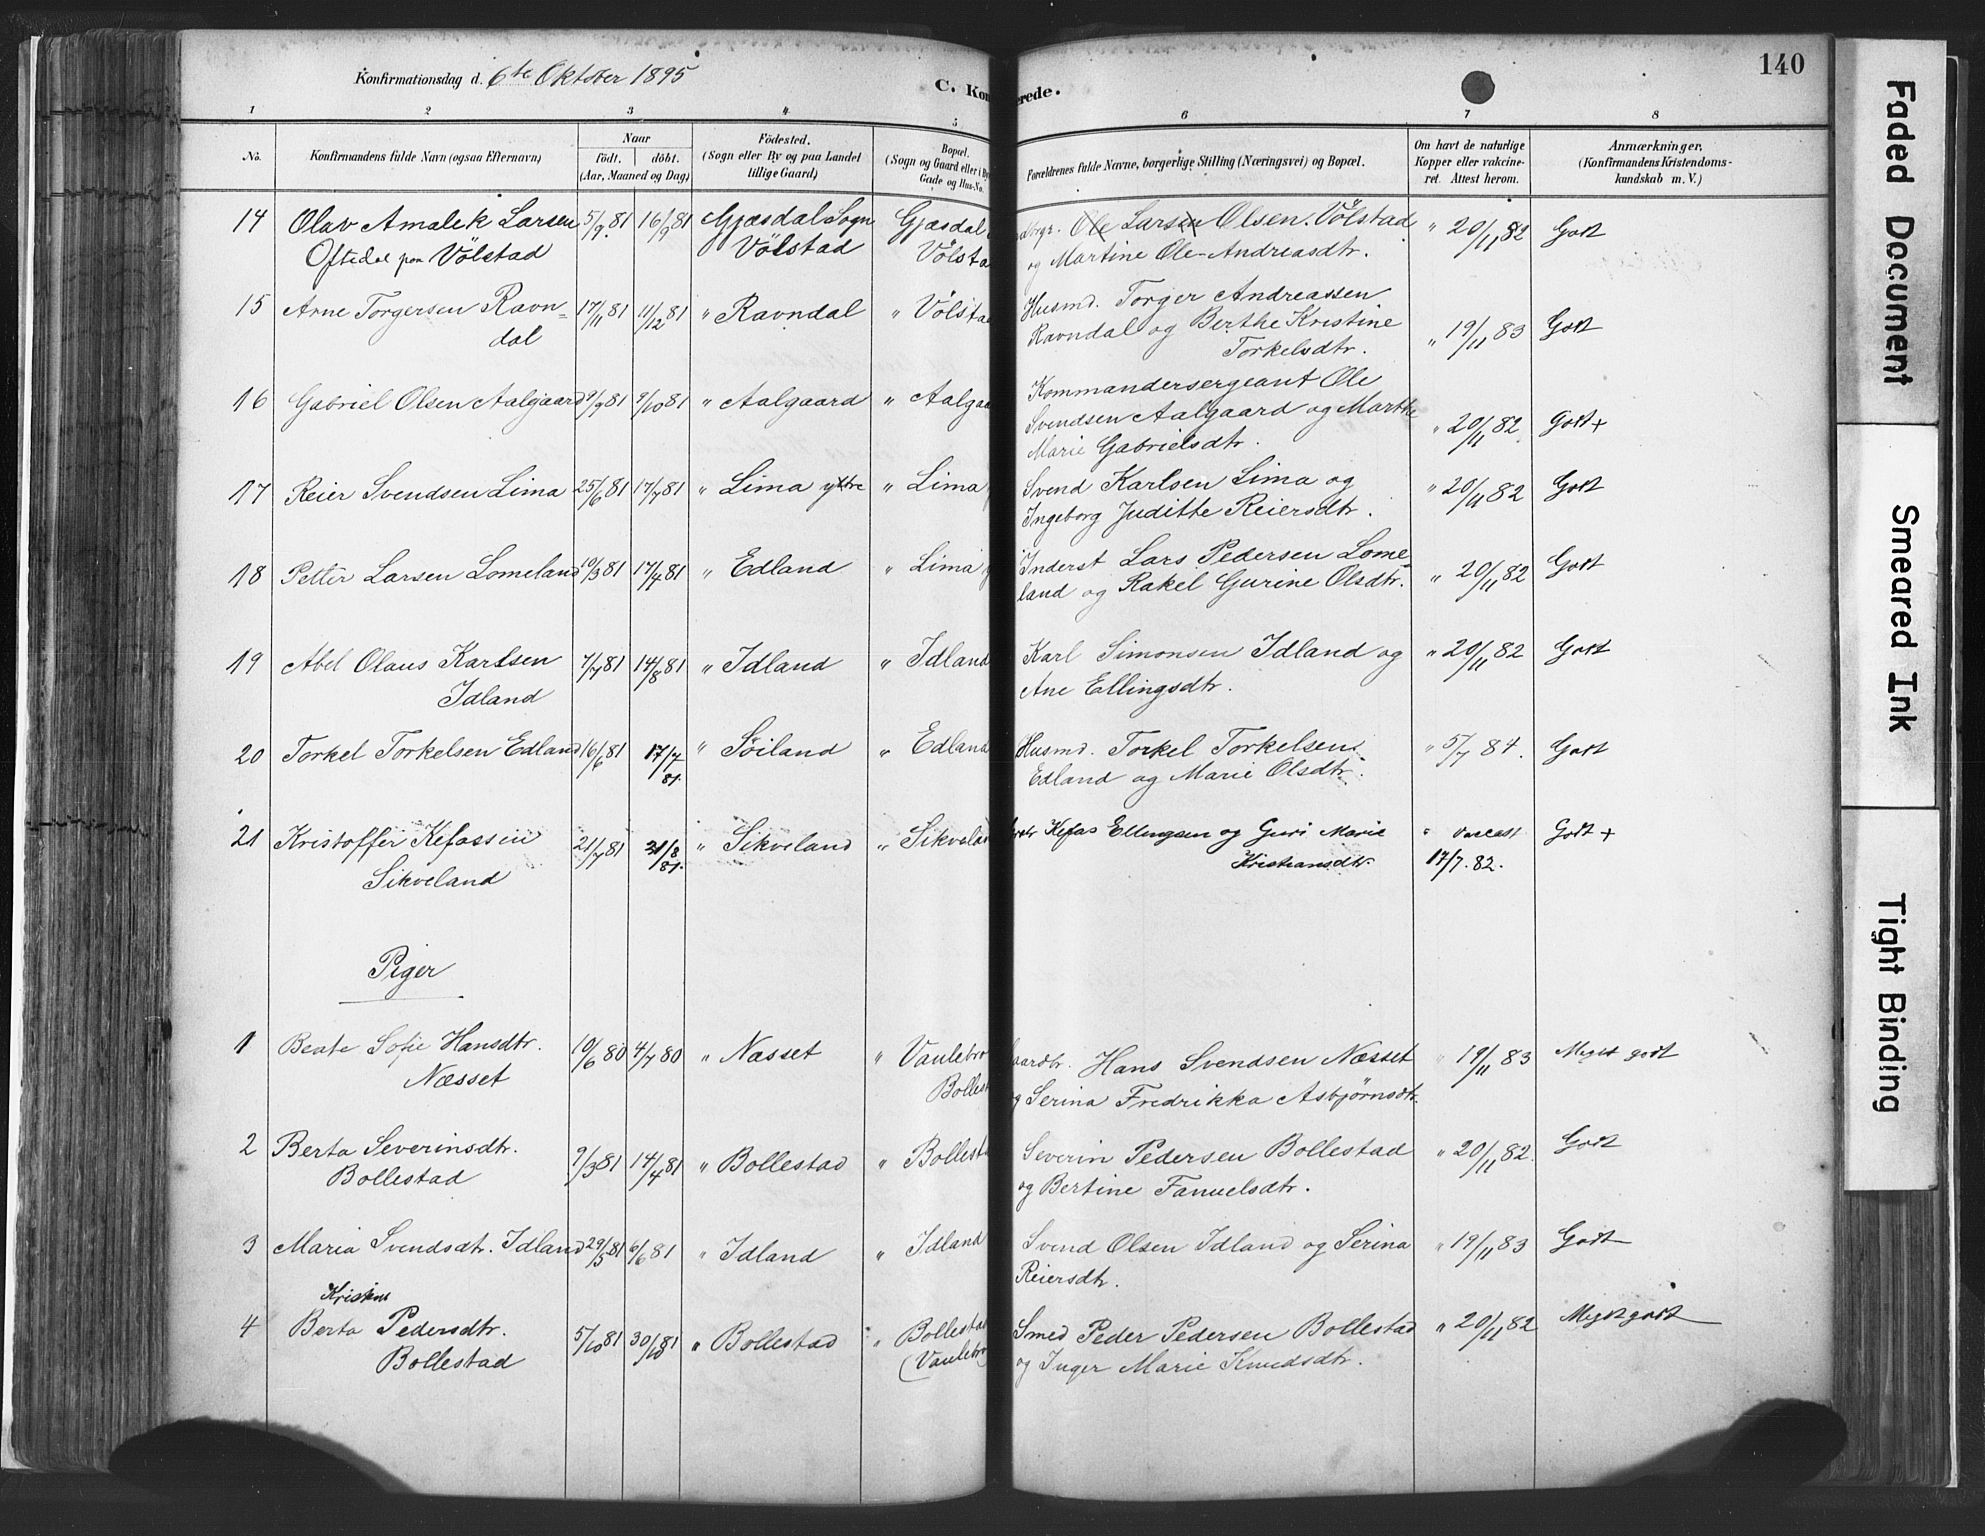 140
Konfirmationsdag d. 6te Oktober 1895
C. Kon erede.
1 2 3 4 5 6 7 8
No. Konfirmandens fulde Navn (ogsaa Efternavn) Naar födt. döbt. (Aar, Maaned og Dag) Födested. (Sogn eller By og paa Landet tillige Gaard) Bopæl. (Sogn og Gaard eller i By Gade og Hus-No. Forældrenes fulde Navne, borgerlige Stilling (Næringsvei) og Bopæl. Om havt de naturlige Kopper eller vakcineret. Attest herom. Anmærkninger. (Konfirmandens Kristendomskundskab m. V.)
14 Olav Amalek Larsen 5/9 81 16/9 81 Gjæsdal Sogn Gjæsdal Ole Larsen Olsen Völstad " 20/11 82 Godt
Oftedal paa Völstad Völstad Völsta og Martine Ole-Andreasdtr.
15 Arne Torgersen Ravn= 17/11 81 11/12 81 " Ravndal " Völsta Husmd. Torger Andreassen
dal Ravndal og Berthe Kristine " 19/11 83 Godt
Torkelsdtr.
16 Gabriel Olsen Aalgaard 9/9 81 9/10 81 " Aalgaard " Aalgaa Kommandersergeant Ole
Svendsen Aalgaard og Marthe " 20/11 82. Godt +
Marie Gabrielsdtr.
17 Reier Svendsen Lima 25/6 81 17/7 81 " Lima yttre " Lima Svend Karlsen Lima og " 20/11 82 Godt
Ingeborg Juditte Reiersdtr.
18 Petter Larsen Lomeland 10/3 81 17/4 81 " Edland " Lima Inderst Lars Pedersen Lome=
land og Rakel Gurine Olsdtr. " 20/11 82 Godt
19 Abel Olaus Karlsen 7/7 81 14/8 81 " Idland " Idland Karl Simonsen Idland og " 20/11 82 Godt
Idland Ane Ellingsdtr.
20 Torkel Torkelsen Edland 16/6 81 17/7 81. " Søiland " Edland Husmd. Torkel Torkelsen " 5/7 84. Godt
Edland og Marie Olsdtr.
21 Kristoffer Kefassen 21/7 81 21/8 81. " Sikveland " Sikvela Kefas Ellingsen og Guri Marie " Godt +
Sikveland Kristiansdtr. 17/7. 82.
Piger
1 Beate Sofie Hansdtr. 10/6 80 4/7 80 " Næsset " Vaulebro aardbr. Hans Svendsen Næsset " 19/11 83 Meget godt
Næsset Bollest g Serina Fredrikka Asbjørnsdtr.
2 Berta Severinsdtr. 9/3 81 14/4 81 " Bollestad " Bollest Severin Pedersen Bollestad " 20/11 82. Godt
Bollestad og Bertine Fanuelsdtr.
3 Maria Svendsdtr. Idland 29/5 81 6/6 81 " Idland " Idland Svend Olsen Idland og Serina " 19/11 83 Godt
Reiersdtr.
Kristine
4 Berta Pedersdtr. 5/10 81 30/10 81 " Bollestad " Bollesta Smed Peder Pedersen Bollestad " 20/11 82 Megetgodt
Bollestad (Vaulebro og Inger Marie Knudsdtr.
Faded Document
Smeared Ink
Tight Binding